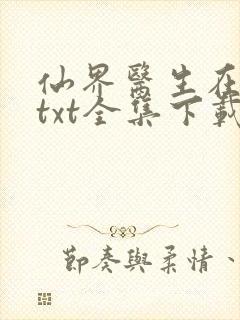 仙界醫生在
txt全集下載
節奏與柔情、